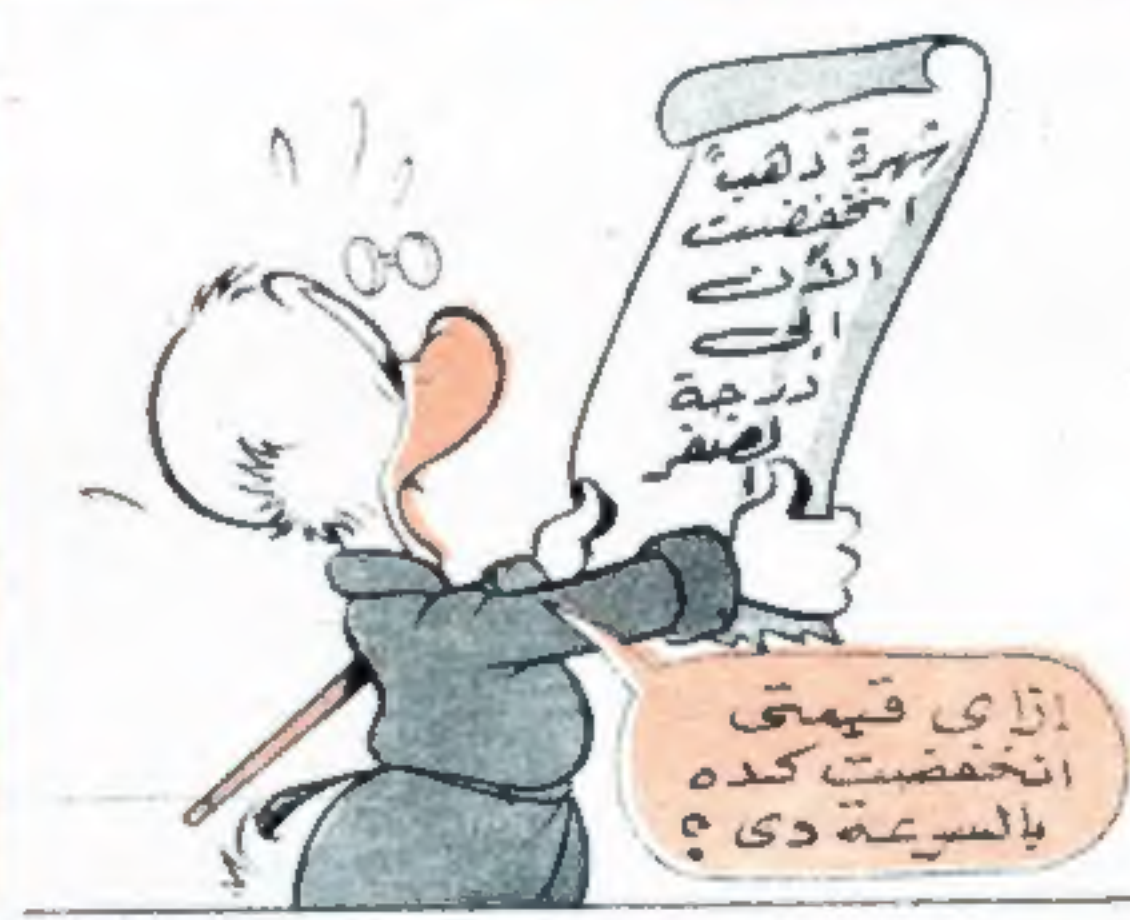 شهرة ذهب
انخفضت
الآن
الى
درجة
الصفر
ازاى قيمتى
انخفضت كده
بالسرعة دى ؟